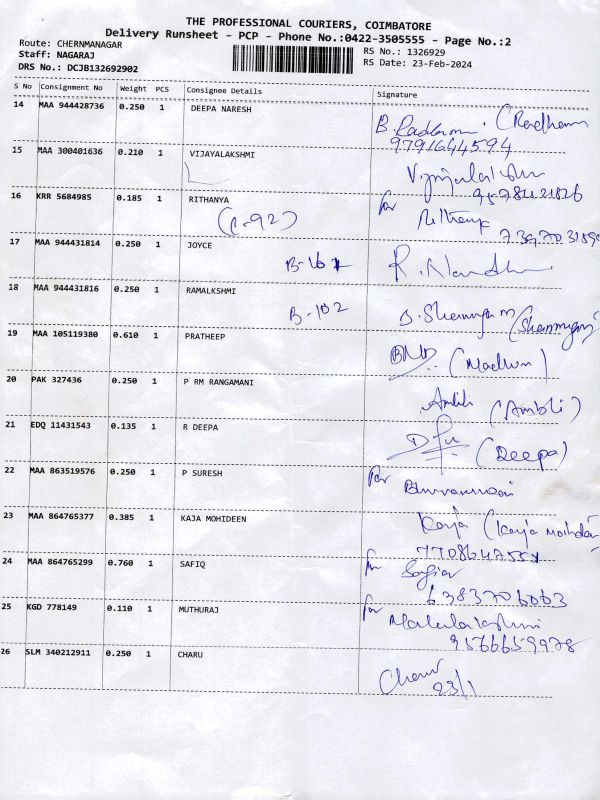 THE PROFESSIONAL COURIERS, COIMBATORE
Delivery Runsheet - PCP - Phone No.:0422-3505555 - Page No.:2
Route: CHERNMANAGAR
Staff: NAGARAJ
DRS No.: DCJB132692902
RS No.: 1326929
RS Date: 23-Feb-2024
S No Consignment No Weight PCS Consignee Details Signature
14 MAA 944428736 0.250 1 DEEPA NARESH
(Radham
9791644594
15 MAA 300401636 0.210 1 VIJAYALAKSHMI
16 KRR 5684985 0.185 1 RITHANYA
for
17 MAA 944431814 0.250 1 JOYCE
R. Nandh
18 MAA 944431816 0.250 1 RAMALKSHMI
B-102
19 MAA 105119380 0.610 1 PRATHEEP
20 PAK 327436 0.250 1 P RM RANGAMANI
(Ambli)
21 EDQ 11431543 0.135 1 R DEEPA
(Deepa)
22 MAA 863519576 0.250 1 P SURESH
for
23 MAA 864765377 0.385 1 KAJA MOHIDEEN
Kaja (Kaja
24 MAA 864765299 0.760 1 SAFIQ
for
6383706063
25 KGD 778149 0.110 1 MUTHURAJ
for
9566659978
26 SLM 340212911 0.250 1 CHARU
Charu
23/1